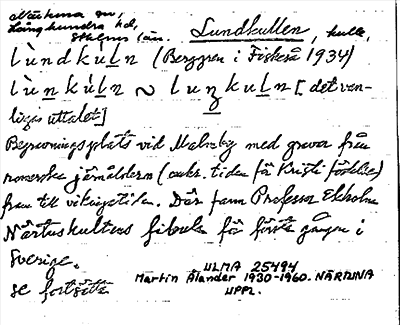 Närtuna sn,
Långhundra hd,
Sthlms län. Lundkullen, kulle,
lùndkúln (Berggren i Fiskeså 1934)
lùnkúln ~ lunkuln [det van-
liga uttalet]
Begravningsplats vid Malmby med gravar från
romerska järnåldern (omkr. tiden för Kristi födelse)
fram till vikingatiden. Där fann Professor Ekholm
Närtuskultens fibula för första gången i
Sverige.
se fortsätta
ULMA 25494
Martin Ålander 1930-1960. NÄRTUNA
UPPL.